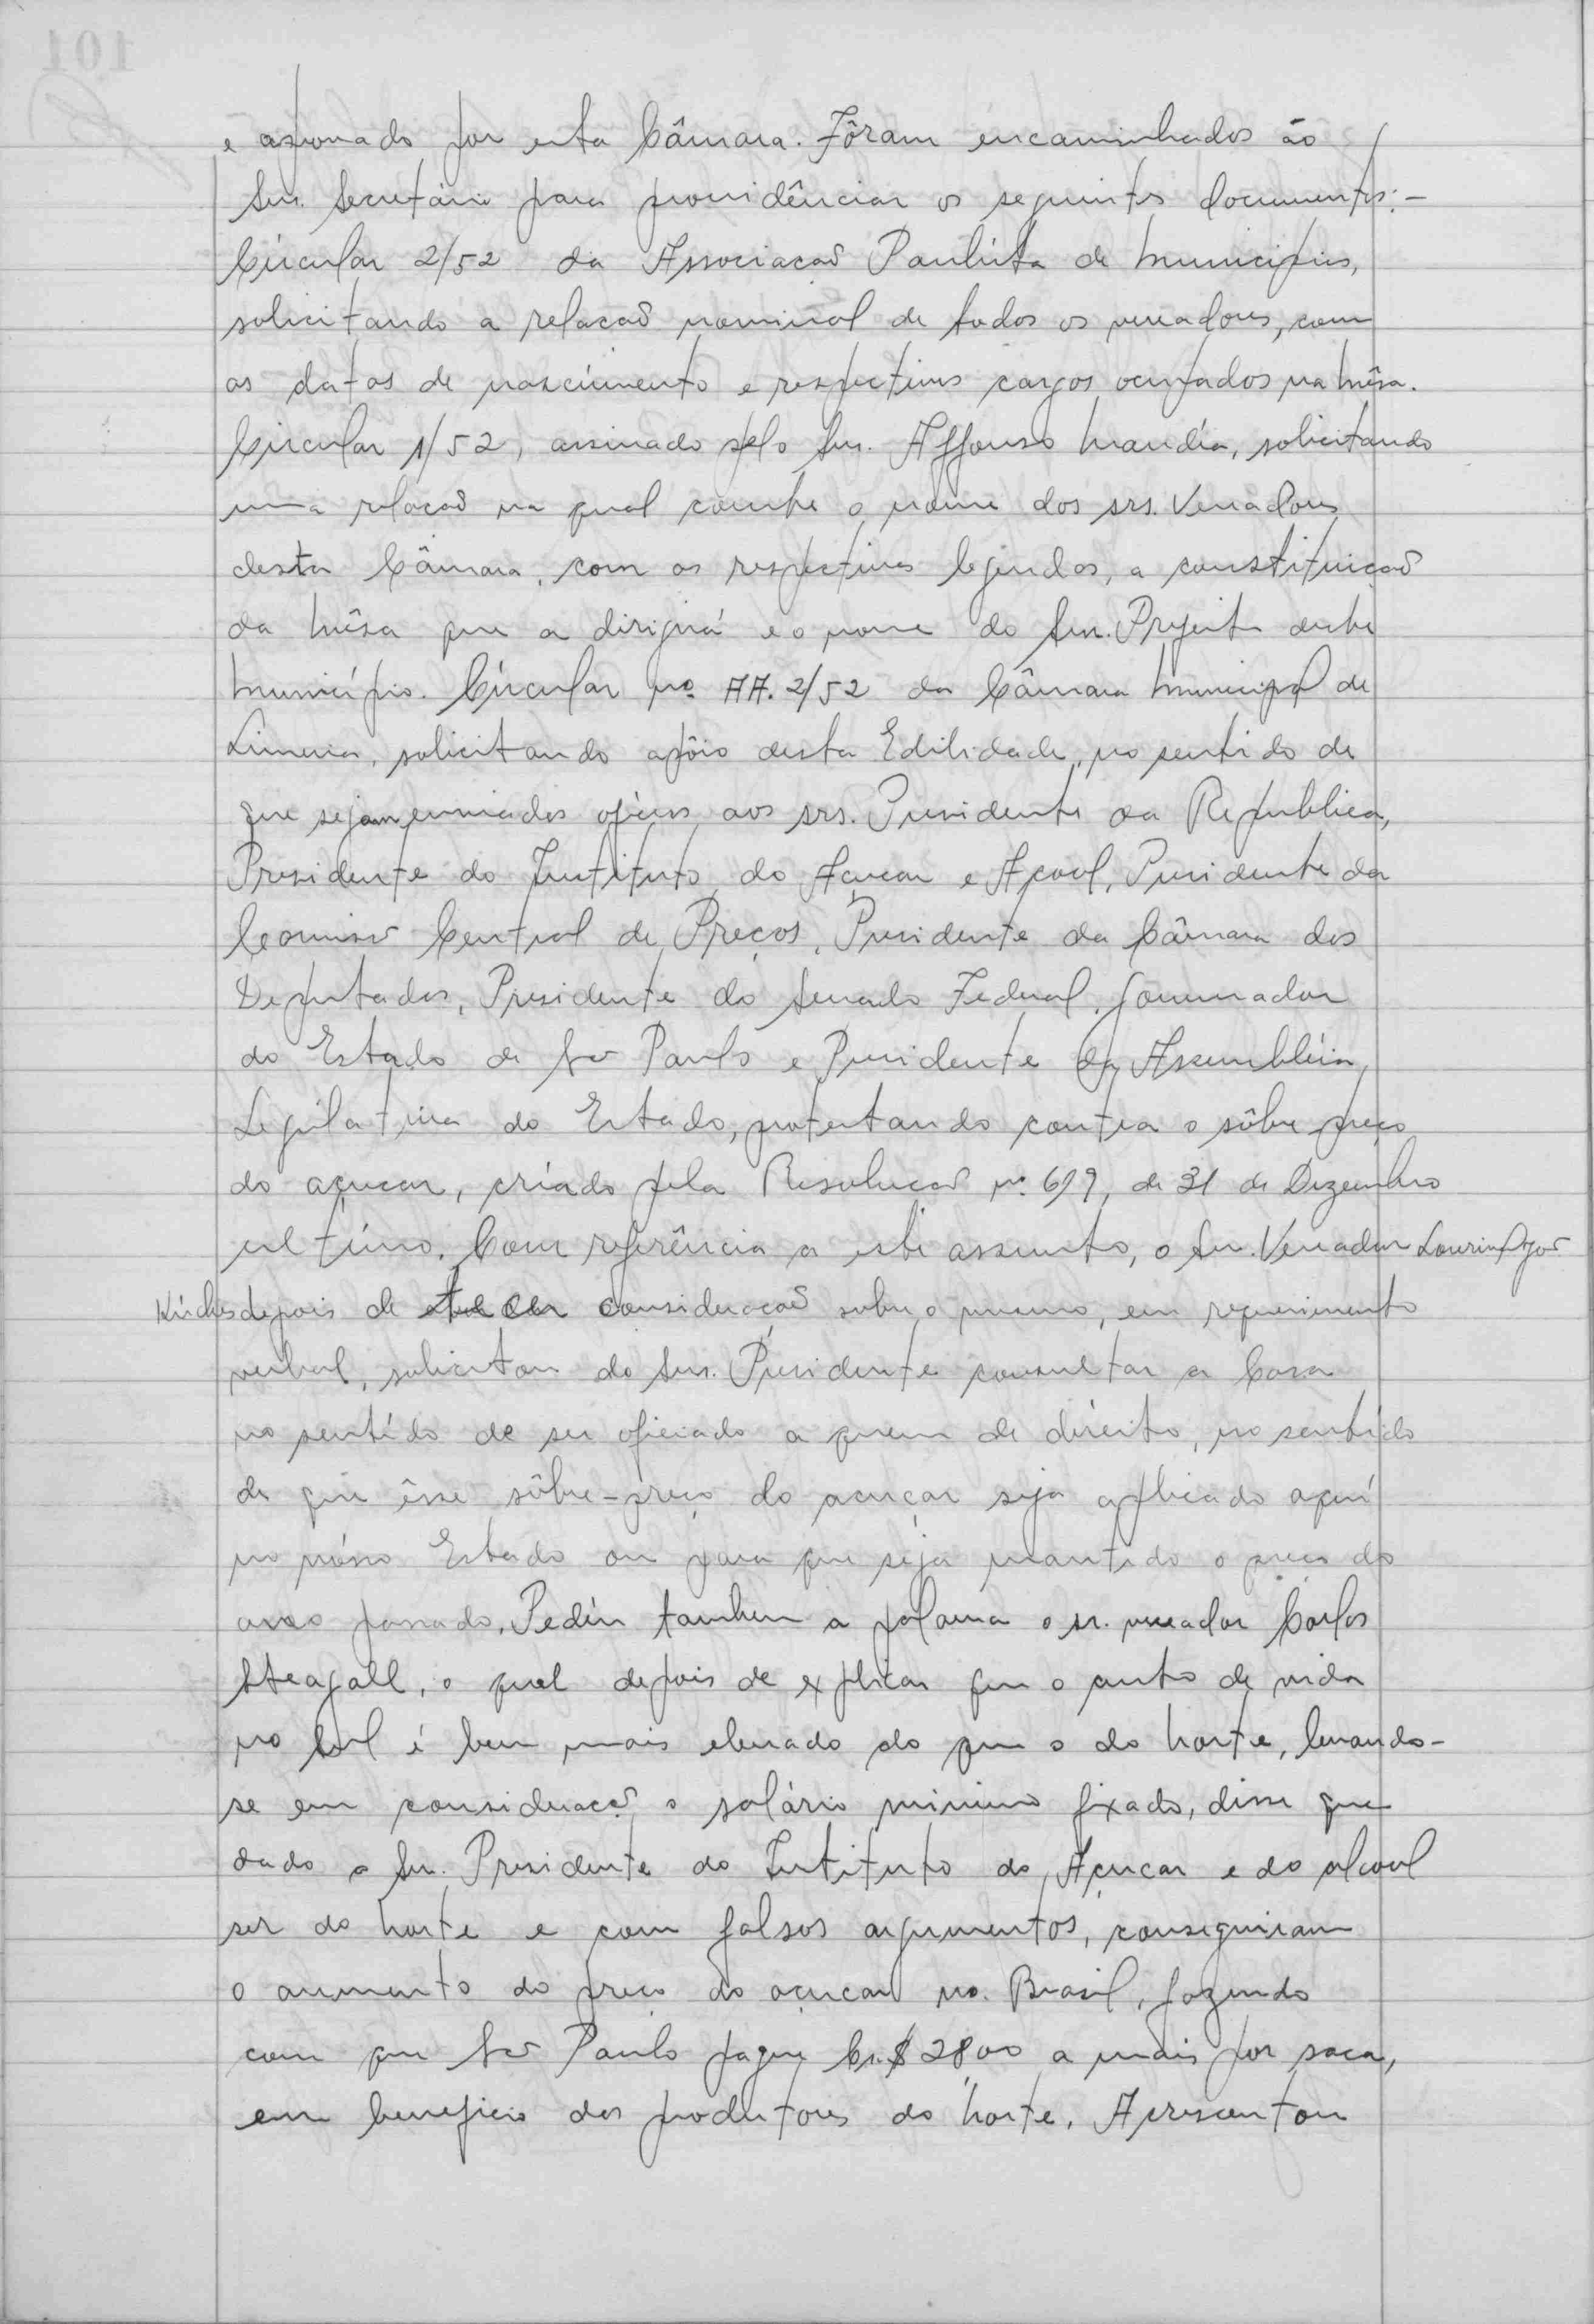 e aprovado por esta Câmara. Fôram encaminhados áo
Snr. Secretário para providênciar os seguintes documentos:-
Circular 2/52 da Associação Paulista de Municipios,
solicitando a relação nominal de todos os vereadores, com
as datas de nascimento e respectivos cargos ocupados na Mêsa.
Circular 1/52, assinado pelo Snr. Affonso Mandia, solicitando
uma relação na qual conste o nome dos srs. Vereadores
desta Câmara, com as respectivas legendas, a constituição
da Mêsa que a dirigirá e o nome do Snr. Prefeito deste
Município. Circular nº AA. 2/52 da Câmara Municipal de
Limeira, solicitando apôio desta Edilidade, no sentido de
que sejam enviados ofícios aos srs. Presidente da Republica,
Presidente do Instituto do Açucar e Alcool, Presidente da
Comissão Central de Preços, Presidente da Câmara dos
Deputados, Presidente do Senado Federal, Governador
do Estado de São Paulo e Presidente da Assembléia
Legislativa do Estado, protestando contra o sôbre-preço
do açucar, criado pela Resolução nº 619, de 31 de Dezembro
ultimo. Com referência a este assunto, o Snr. Vereador
depois de tecer consideração sobre o mesmo, em requerimento
verbal, solicitou do Snr. Presidente consultar a Casa
no sentido de ser oficiado a quem de direito, no sentido
de que êsse sôbre-preço do açucar seja aplicado aqui
no nósso Estado ou para que seja mantido o preço do
ano passado. Pediu tambem a palavra o sr. vereador Carlos
Steagall, o qual depois de explicar que o custo de vida
no Sul é bem mais elevado do que o do Norte, levando-
se em consideração o salário minimo fixado, disse que
dado o Snr. Presidente do Instituto do Açucar e do alcool
ser do Norte e com falsos argumentos, conseguiram
o aumento do preço do açucar no Brasil, fazendo
com que São Paulo pague Cr.$ 28,00 a mais por saca,
em beneficio dos produtores do Norte. Apresentou